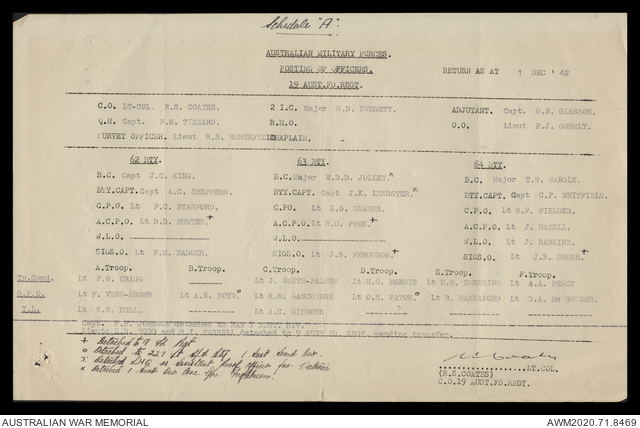 Schedule "A".
AUSTRALIAN MILITARY FORCES.
POSTING OF OFFICERS.
19 AUST.FD.REGT.
RETURN AS AT 1 DEC '42
C.O. LT-COL. R.S. COATES. 2 I.C. Major O.D. EVERETT. ADJUTANT. Capt. G.W. GLASSON.
Q.M. Capt. F.M. TIZZARD. R.M.O. O.O. Lieut F.J. GORMLY.
SURVEY OFFICER. Lieut R.S. HORSEFIELD CHAPLAIN.
62 BTY. 63 BTY. 64 BTY.
B.C. Capt J.C. KING. B.C. Major W.D.D. JOLLEY. x B.C. Major T.W. WARDLE.
BTY.CAPT. Capt A.C. SHEPHERD. BTY.CAPT. Capt J.K. BTY.CAPT. Capt C.F. WHITFIELD.
C.P.O. Lt F.C. STANFORD. C.PO. Lt L.G. SHANKS. C.P.O. Lt B.P. FIELDER.
A.C.P.O. Lt D.D. HUNTER. + A.C.P.O Lt B.D. + A.C.P.O. Lt J.
W.L.O. W.L.O. W.L.O. Lt J. RANKINE.
SIGS.O. Lt F.H. BADGER. SIGS.O. Lt J.B. FERGUSON. + SIGS.O. Lt J.E. +
A.Troop. B.Troop. C.Troop. D.Troop. E.Troop. F.Troop.
Tp.Comd. Lt F.O. CRAGO Lt J. SMITH-PALMER Lt H.G. MORRIS Lt H.B. Lt A.A. PERCY
G.P.O. Lt F. VENN-BROWN Lt A.N. BOYD. o Lt R.N. GASCOIGNE Lt O.H. PATON. o Lt R. HANNAFORD Lt D.A. Mc GREGOR.
T.L. Lt S.H. BULL. Lt A.C. GIBBONS
Capt. F.N. JOHNSON detached to
Lieuts and detached to 9 AUST.FD.REGT. pending transfer.
+ Detached to 9 Fd. Regt
o Detached to 227 Lt 1 Aust Div.
Detached LHQ as Assistant Proof officer for
x Detached 1 Aust Div
LT.COL.
(R.S.COATES)
C.O.19 AUST.FD.REGT.
AUSTRALIAN WAR MEMORIAL AWM2020.71.8469